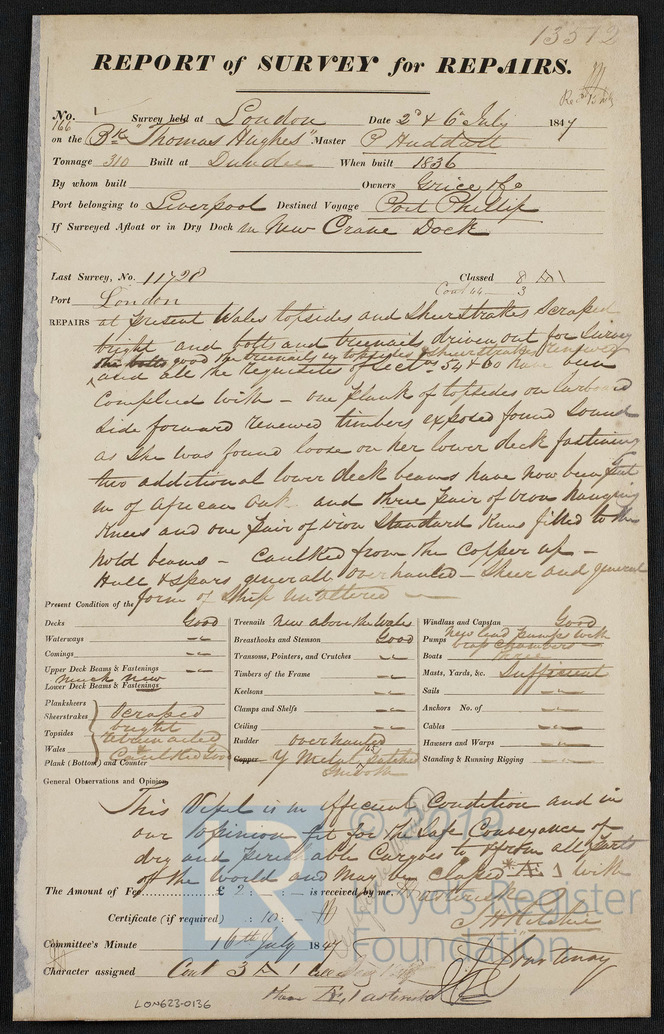 13572
REPORT of SURVEY for REPAIRS.
No. 166 Survey held at London Date 2d & 6th July 1847
on the Bk "Thomas Hughes" Master P Huddart
Tonnage 310 Built at Dundee When built 1836
By whom built Owners Grice & Co
Port belonging to Liverpool Destined Voyage Port Phillip
If Surveyed Afloat or in Dry Dock in New Crane Dock
Last Survey, No. 11728 Classed 8 A 1
Port London Cont 44 - 3
REPAIRS at present Wales topsides and Sheerstrakes Scraped
bright and bolts and treenails driven out for Survey
the bolts good the treenails in topsides & sheerstrakes renewed
and all the requisites of Sects 54 & 60 have been
Complied with - one plank of topsides on larboard
side forward renewed timbers exposed found Sound
as She was found loose on her lower deck fastening
two additional lower deck beams have now been put
in of African Oak and three pair of iron hanging
Knees and one pair of iron Standard Knees fitted to the
hold beams - Caulked from the Copper up -
Hull & Spars generally overhauled - Sheer and general
form of Ship unaltered
Present Condition of the
Decks Good Treenails new above the Wales Windlass and Capstan Good
Waterways Breasthooks and Stemson Good Pumps new lead pumps with
Comings Transoms, Pointers, and Crutches Boats three
Upper Deck Beams & Fastenings Timbers of the Frame Masts, Yards, &c. Sufficient
much new
Lower Deck Beams & Fastenings Keelsons Sails
Plankshears Clamps and Shelfs Anchors No. of
Sheerstrakes Scraped Ceiling Cables
Topsides bright Rudder overhauled Hawsers and Warps
Wales
Plank (Bottom) and Counter Caulked Good Copper Y Metal Standing & Running Rigging
General Observations and Opinion
This Vessel is in efficient Condition and in
our Opinion fit for the Safe Conveyance of
dry and perishable Cargoes to & from all Parts
of the World and may be Classed * A 1 with
The Amount of Fee £ 2 : : — is received by me. asterisk
Certificate (if required) : 10 : — J H Ritchie
Committee's Minute 16th July 1847 Courtenay
Character assigned Cont 3 A 1
than Æ 1 asterisk
LON623-0136
© 2019
Lloyd's Register
Foundation
LR